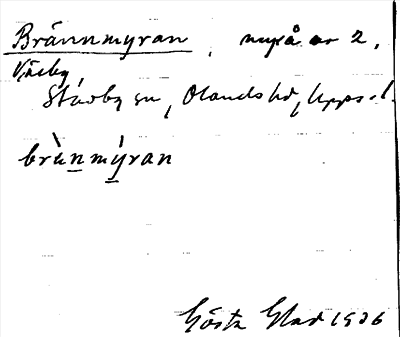 Brännmyran, myrå av 2,
Väsby,
Stavby sn, Olands hd, Upps. l.
brànmýran
Gösta Glad 1936